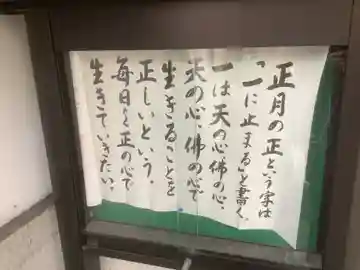 正月の正という字は
「一に止まる」と書く。
一は天の心、佛の心、
天の心、佛の心で
生きることを
正しいという。
毎日を正の心で
生きていきたい。